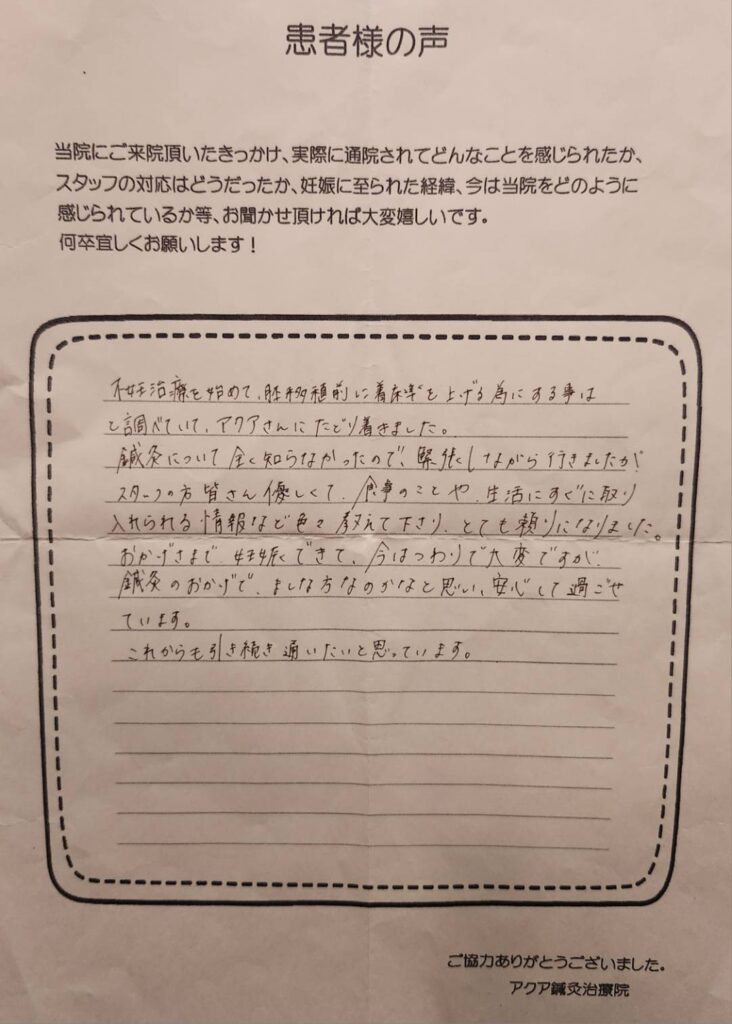 患者様の声
当院にご来院頂いたきっかけ、実際に通院されてどんなことを感じられたか、
スタッフの対応はどうだったか、妊娠に至られた経緯、今は当院をどのように
感じられているか等、お聞かせ頂ければ大変嬉しいです。
何卒宜しくお願いします！
不妊治療を始めて、胚移植前に着床率を上げる為にする事は
と調べていて、アクアさんにたどり着きました。
鍼灸について全く知らなかったので、緊張しながら行きましたが
スタッフの方皆さん優しくて、食事のことや、生活にすぐに取り
入れられる情報など色々教えて下さり、とても頼りになりました。
おかげさまで、妊娠できて、今はつわりで大変ですが、
鍼灸のおかげで、ましな方なのかなと思い、安心して過ごせ
ています。
これからも引き続き通いたいと思っています。
ご協力ありがとうございました。
アクア鍼灸治療院